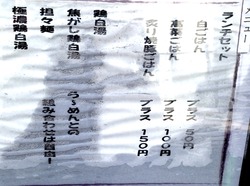 メニュー
ランチセット
白ごはん プラス 50円
高菜ごはん プラス 100円
炙り焼豚ごはん プラス 150円
らーめんとの
組み合わせは自由!
鶏白湯
焦がし鶏白湯
担々麺
極濃鶏白湯